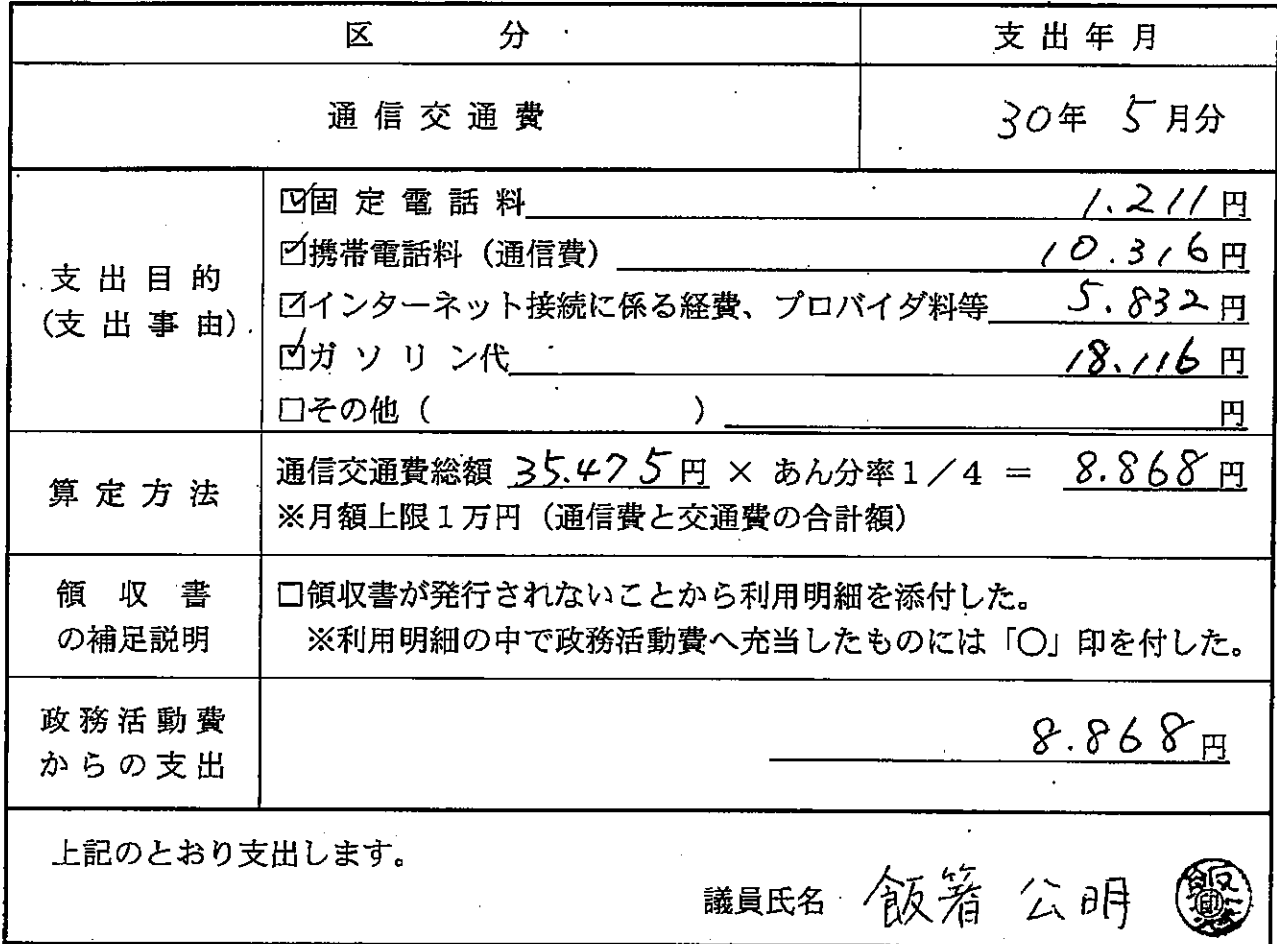 区 分 支出年月
通信交通費 30年 5月分
支出目的
(支出事由)
☑固定電話料 1.211円
☑携帯電話料（通信費） 10.316円
☑インターネット接続に係る経費、プロバイダ料等 5.832円
☑ガソリン代 18.116円
□その他（ ） 円
算定方法
通信交通費総額 35.475円 × あん分率1／4 = 8.868円
※月額上限1万円（通信費と交通費の合計額）
領収書
の補足説明
□領収書が発行されないことから利用明細を添付した。
※利用明細の中で政務活動費へ充当したものには「〇」印を付した。
政務活動費
からの支出
8.868円
上記のとおり支出します。
議員氏名 飯箸 公明